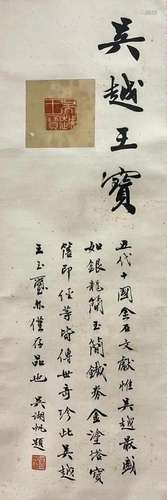 吳越王寶
五代十國金石文獻惟吳越最盛
如銀龍簡玉簡鐵券金塗塔寶
篋印經等皆傳世奇珍此吳越
王玉璽亦僅存品也 吳湖帆題